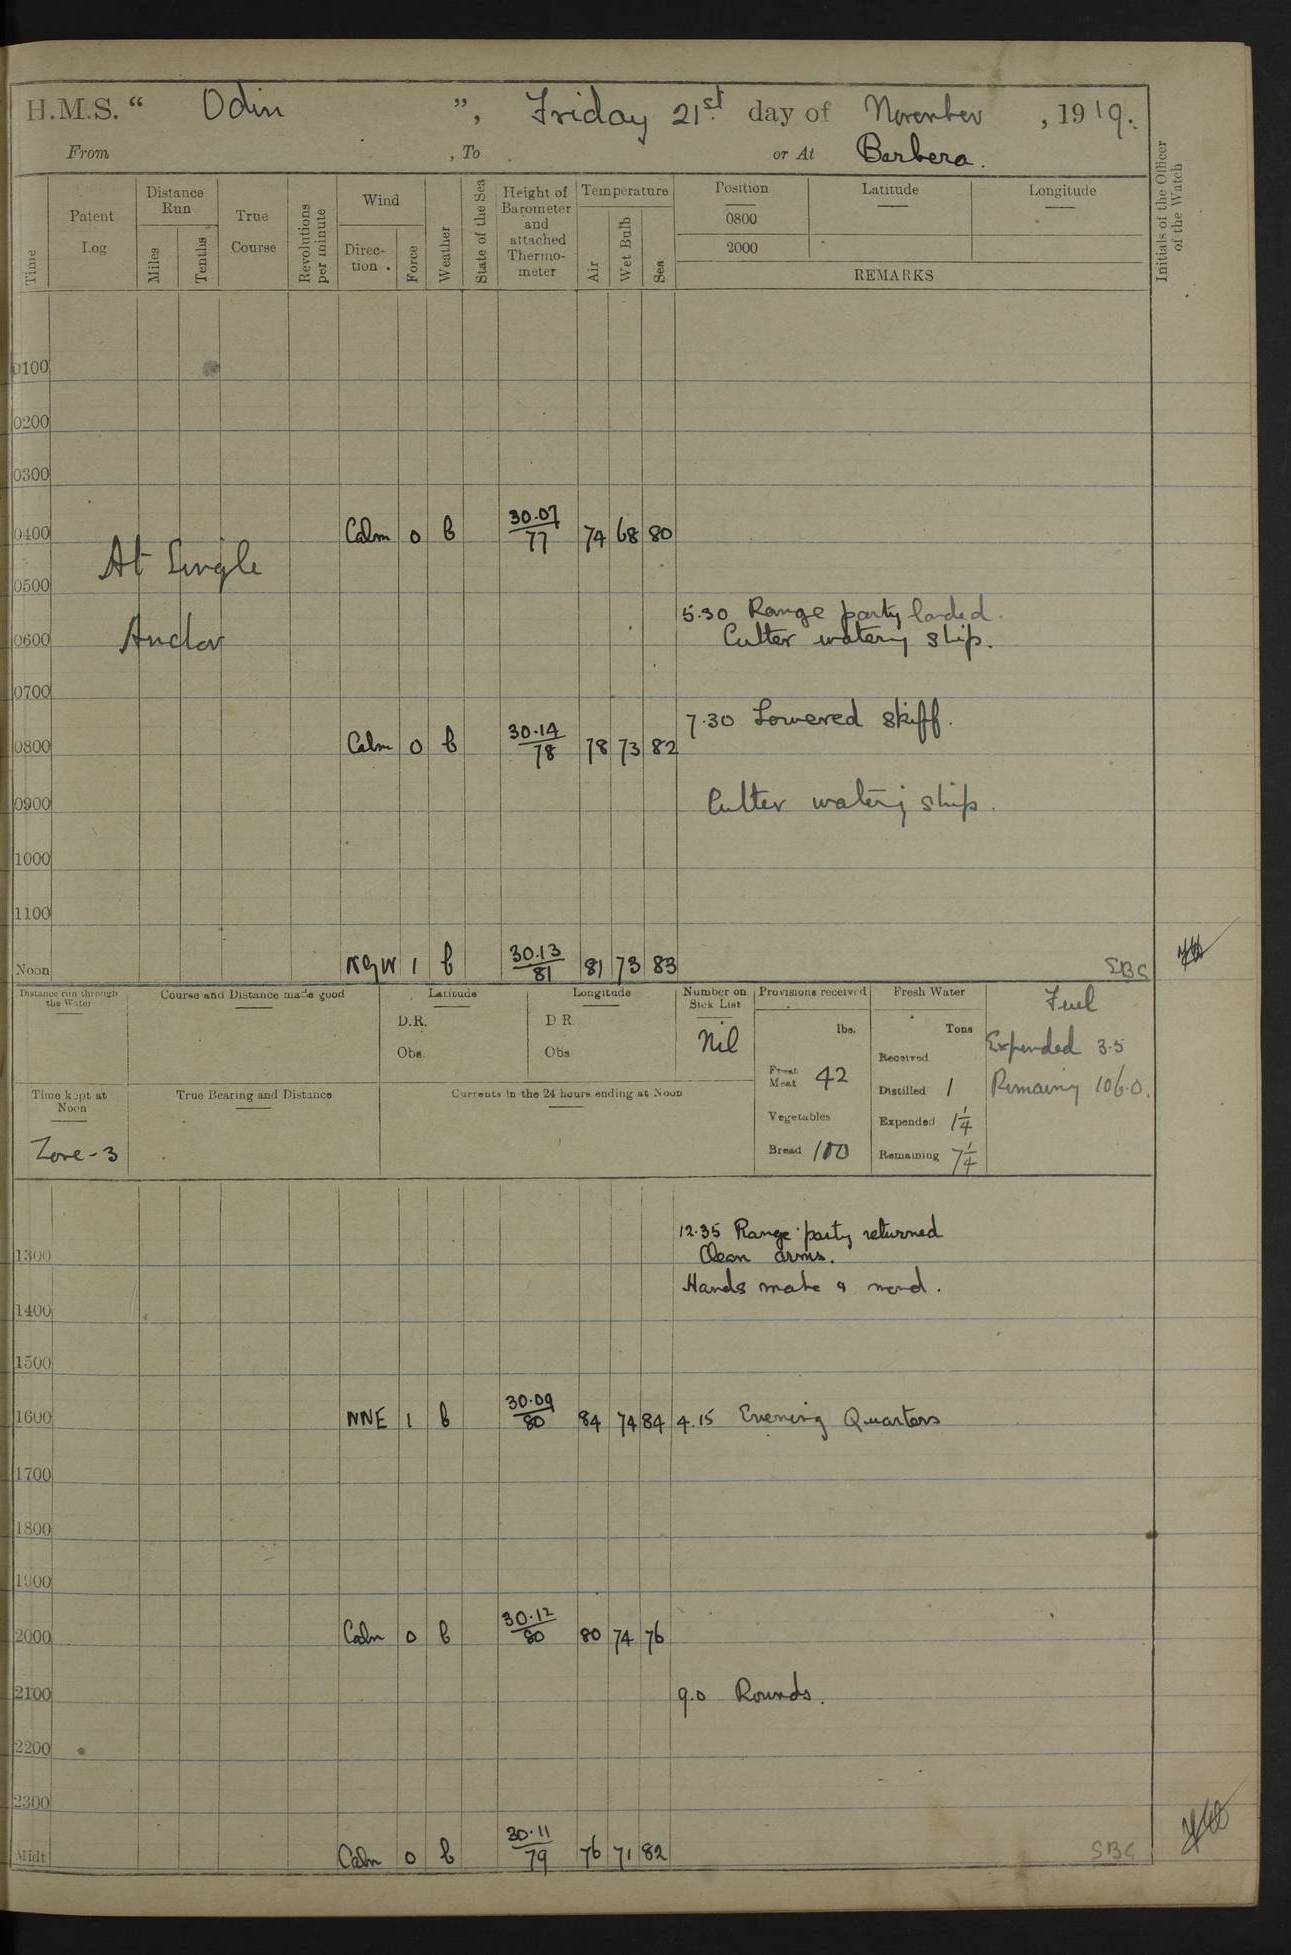 H.M.S. “ Odin ”, Friday 21st day of November, 1919.
From , To or At Berbera.
Time
Patent Log
Distance Run
Miles
Tenths
True Course
Revolutions per minute
Wind
Direc-tion.
Force
Weather
State of the Sea
Height of Barometer and attached Thermo-meter
Temperature
Air
Wet Bulb
Sea
Position
Latitude
Longitude
0800
2000
REMARKS
Initials of the Officer of the Watch
0100
0200
0300
0400 Calm 0 b 30.07/77 74 68 80
At Single
0500
5.30 Range party landed.
0600 Cutter watering ship.
Anchor
0700
7.30 Lowered skiff.
0800 Calm 0 b 30.14/78 78 73 82
0900 Cutter watering ship.
1000
1100
Noon 1 b 30.13/81 81 73 83 SBS
Distance run through the Water
Course and Distance made good
Latitude
D.R.
Obs.
Longitude
D R.
Obs
Number on Sick List
Nil
Provisions received
lbs.
Fresh Meat 42
Vegetables
Bread 100
Fresh Water
Tons
Received
Distilled 1
Expended 1 1/4
Remaining 7 1/4
Fuel
Expended 3.5
Remaining 106.0.
Time kept at Noon
Zone -3
True Bearing and Distance
Currents in the 24 hours ending at Noon
12.35 Range party returned
1300 Clean arms.
Hands make & mend.
1400
1500
1600 NNE 1 b 30.09/80 84 74 84 4.15 Evening Quarters
1700
1800
1900
2000 Calm 0 b 30.12/80 80 74 76
2100 9.0 Rounds.
2200
2300
Midt Calm 0 b 30.11/79 76 71 82 SBS